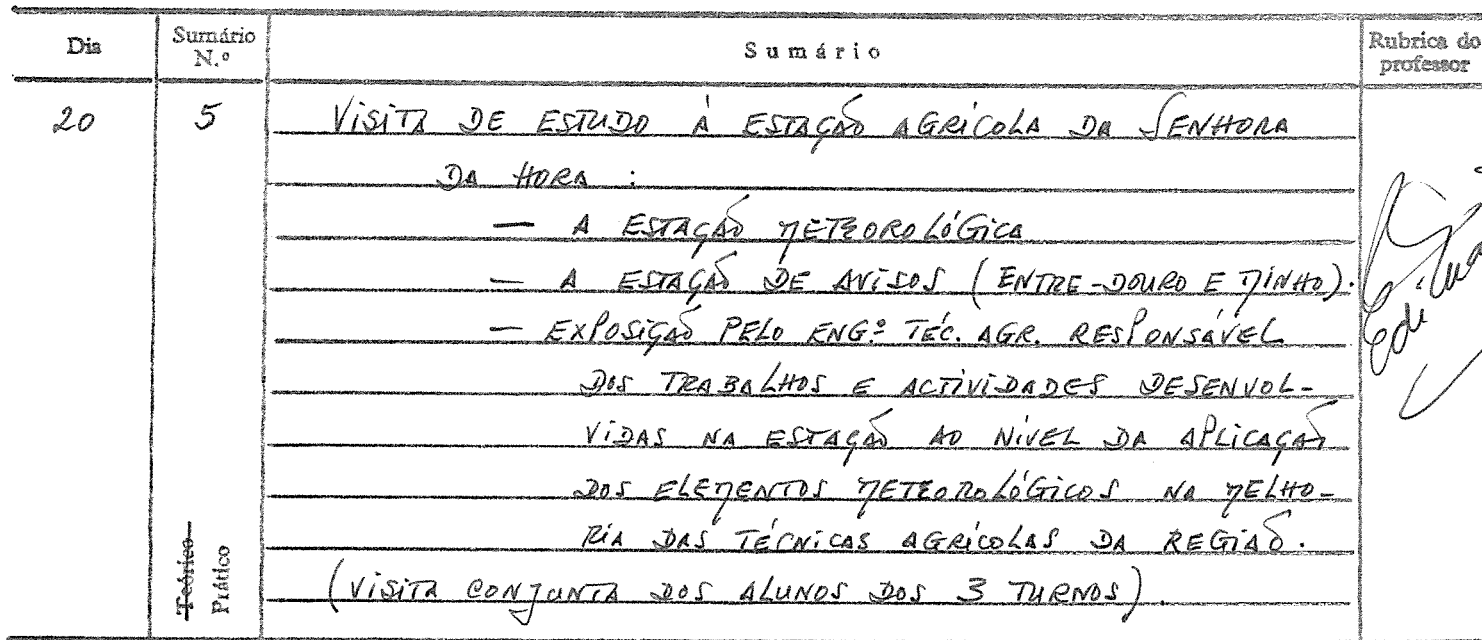 Dia Sumário N.º Sumário Rubrica do professor
20 5 VISITA DE ESTUDO À ESTAÇÃO AGRÍCOLA DA SENHORA
DA HORA :
— A ESTAÇÃO METEOROLÓGICA
— A ESTAÇÃO DE AVISOS (ENTRE-DOURO E MINHO).
— EXPOSIÇÃO PELO ENG.º TÉC. AGR. RESPONSÁVEL
DOS TRABALHOS E ACTIVIDADES DESENVOL-
VIDAS NA ESTAÇÃO AO NÍVEL DA APLICAÇÃO
DOS ELEMENTOS METEOROLÓGICOS NA MELHO-
RIA DAS TÉCNICAS AGRÍCOLAS DA REGIÃO.
(VISITA CONJUNTA DOS ALUNOS DOS 3 TURNOS).
Teórico
Prático